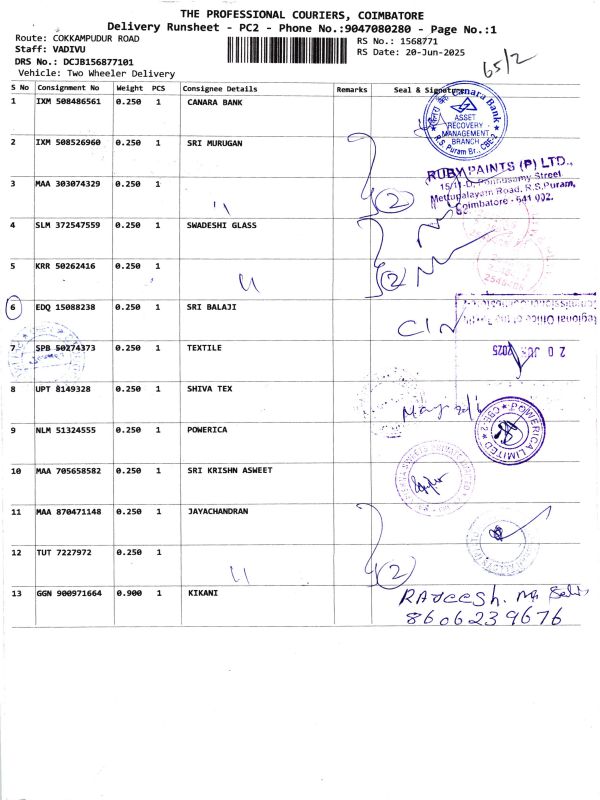 THE PROFESSIONAL COURIERS, COIMBATORE
Delivery Runsheet - PC2 - Phone No.:9047080280 - Page No.:1
Route: COKKAMPUDUR ROAD
RS No.: 1568771
Staff: VADIVU
RS Date: 20-Jun-2025
DRS No.: DCJB156877101
Vehicle: Two Wheeler Delivery
65/2
S No Consignment No Weight PCS Consignee Details Remarks Seal & Signature
1 IXM 508486561 0.250 1 CANARA BANK
Canara Bank
ASSET
RECOVERY
MANAGEMENT
BRANCH
R.S. Puram Br., CBE-2
2 IXM 508526960 0.250 1 SRI MURUGAN
RUBY PAINTS (P) LTD.,
15/11-D, Ponnusamy Street
Mettupalayam Road, R.S.Puram,
Coimbatore - 641 002.
3 MAA 303074329 0.250 1 " (2)
4 SLM 372547559 0.250 1 SWADESHI GLASS
5 KRR 50262416 0.250 1 " (2)
6 EDQ 15088238 0.250 1 SRI BALAJI
Regional Office of the
20 JUN 2025
7 SPB 50274373 0.250 1 TEXTILE
8 UPT 8149328 0.250 1 SHIVA TEX
9 NLM 51324555 0.250 1 POWERICA
POWERICA LIMITED
CBE-2
10 MAA 705658582 0.250 1 SRI KRISHN ASWEET
11 MAA 870471148 0.250 1 JAYACHANDRAN
12 TUT 7227972 0.250 1 " (2)
13 GGN 900971664 0.900 1 KIKANI
RAJEESH.
8606239676